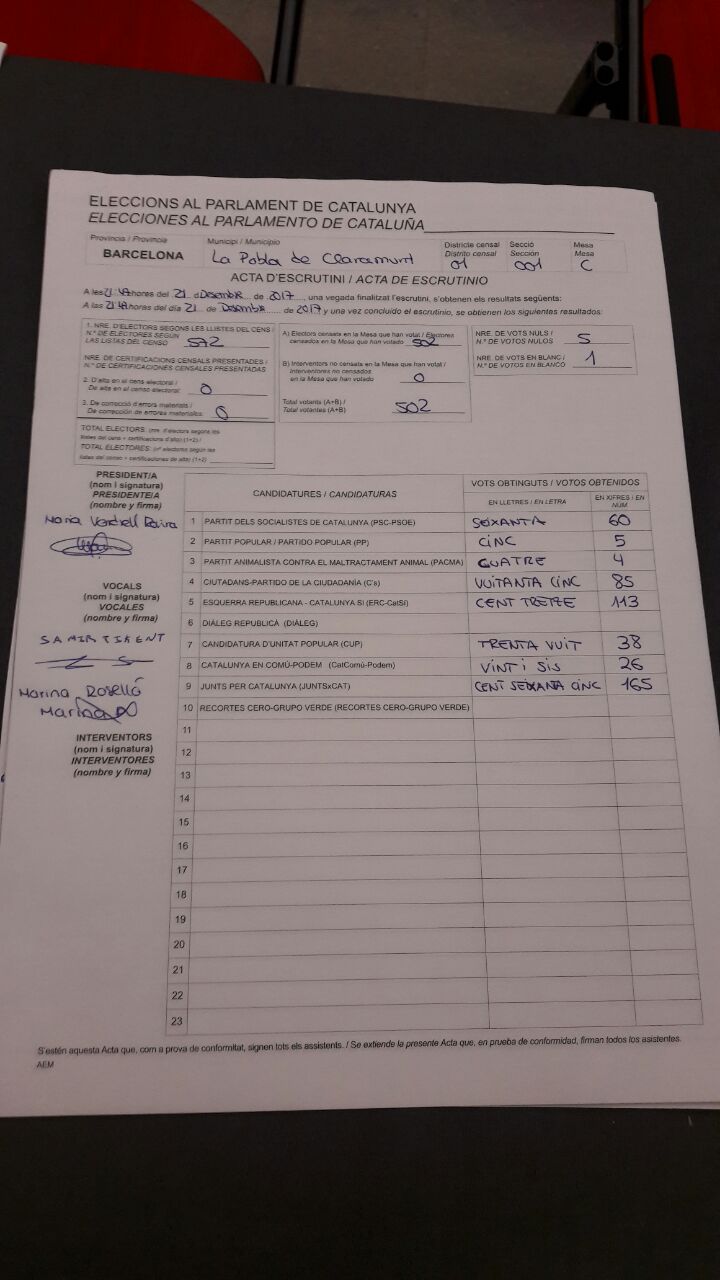 ELECCIONS AL PARLAMENT DE CATALUNYA
ELECCIONES AL PARLAMENTO DE CATALUÑA
Província / Provincia
BARCELONA
Municipi / Municipio
La Pobla de Claramunt
Districte censal
Distrito censal
01
Secció
Sección
001
Mesa
Mesa
C
ACTA D'ESCRUTINI / ACTA DE ESCRUTINIO
A les 21:49 hores del 21 de Desembre de 2017, una vegada finalitzat l'escrutini, s'obtenen els resultats següents:
A las 21:49 horas del día 21 de Desembre de 2017 y una vez concluido el escrutinio, se obtienen los siguientes resultados:
1. NRE. D'ELECTORS SEGONS LES LLISTES DEL CENS /
N.º DE ELECTORES SEGÚN
LAS LISTAS DEL CENSO 572
NRE. DE CERTIFICACIONS CENSALS PRESENTADES /
N.º DE CERTIFICACIONES CENSALES PRESENTADAS
2. D'alta en el cens electoral /
De alta en el censo electoral: 0
3. De correcció d'errors materials /
De corrección de errores materiales: 0
TOTAL ELECTORS: (nre. d'electors segons les
llistes del cens + certificacions d'alta) (1+2) /
TOTAL ELECTORES: (nº electores según las
listas del censo + certificaciones de alta) (1+2)
A) Electors censats en la Mesa que han votat / Electores
censados en la Mesa que han votado 502
B) Interventors no censats en la Mesa que han votat /
Interventores no censados
en la Mesa que han votado 0
Total votants (A+B) /
Total votantes (A+B) 502
NRE. DE VOTS NULS /
N.º DE VOTOS NULOS 5
NRE. DE VOTS EN BLANC /
N.º DE VOTOS EN BLANCO 1
PRESIDENT/A
(nom i signatura)
PRESIDENTE/A
(nombre y firma)
VOCALS
(nom i signatura)
VOCALES
(nombre y firma)
SAMIR
Marina Roselló
Marina
INTERVENTORS
(nom i signatura)
INTERVENTORES
(nombre y firma)
CANDIDATURES / CANDIDATURAS
VOTS OBTINGUTS / VOTOS OBTENIDOS
EN LLETRES / EN LETRA
EN XIFRES / EN NÚM
1 PARTIT DELS SOCIALISTES DE CATALUNYA (PSC-PSOE) SEIXANTA 60
2 PARTIT POPULAR / PARTIDO POPULAR (PP) CINC 5
3 PARTIT ANIMALISTA CONTRA EL MALTRACTAMENT ANIMAL (PACMA) QUATRE 4
4 CIUTADANS-PARTIDO DE LA CIUDADANÍA (C's) VUITANTA CINC 85
5 ESQUERRA REPUBLICANA - CATALUNYA SÍ (ERC-CatSí) CENT TRETZE 113
6 DIÀLEG REPUBLICÀ (DIÀLEG)
7 CANDIDATURA D'UNITAT POPULAR (CUP) TRENTA VUIT 38
8 CATALUNYA EN COMÚ-PODEM (CatComú-Podem) VINT I SIS 26
9 JUNTS PER CATALUNYA (JUNTSxCAT) CENT SEIXANTA CINC 165
10 RECORTES CERO-GRUPO VERDE (RECORTES CERO-GRUPO VERDE)
11
12
13
14
15
16
17
18
19
20
21
22
23
S'estén aquesta Acta que, com a prova de conformitat, signen tots els assistents. / Se extiende la presente Acta que, en prueba de conformidad, firman todos los asistentes.
AEM